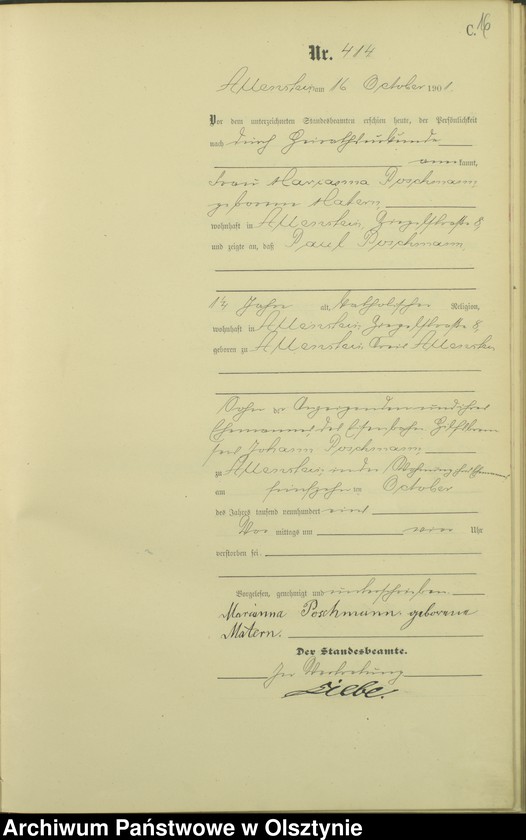 C. 16
Nr. 414
Allenstein am 16 October 1901.
Vor dem unterzeichneten Standesbeamten erschien heute, der Persönlichkeit
nach durch Heirathsurkunde
anerkannt,
Frau Marianna Poschmann
geborene Matern,
wohnhaft in Allenstein, Ziegelstraße 8,
und zeigte an, daß Paul Poschmann,
Jahre alt, katholischer Religion,
wohnhaft in Allenstein, Ziegelstraße 8,
geboren zu Allenstein, Kreis Allenstein
Sohn der Anzeigenden und ihres
Ehemannes, des Eisenbahn
Johann Poschmann,
zu Allenstein, in der Wohnung
am fünfzehnten October
des Jahres tausend neunhundert eins
Vor mittags um Uhr
verstorben sei.
Vorgelesen, genehmigt und unterschrieben
Marianna Poschmann geborene
Matern.
Der Standesbeamte.
In Vertretung
Archiwum Państwowe w Olsztynie